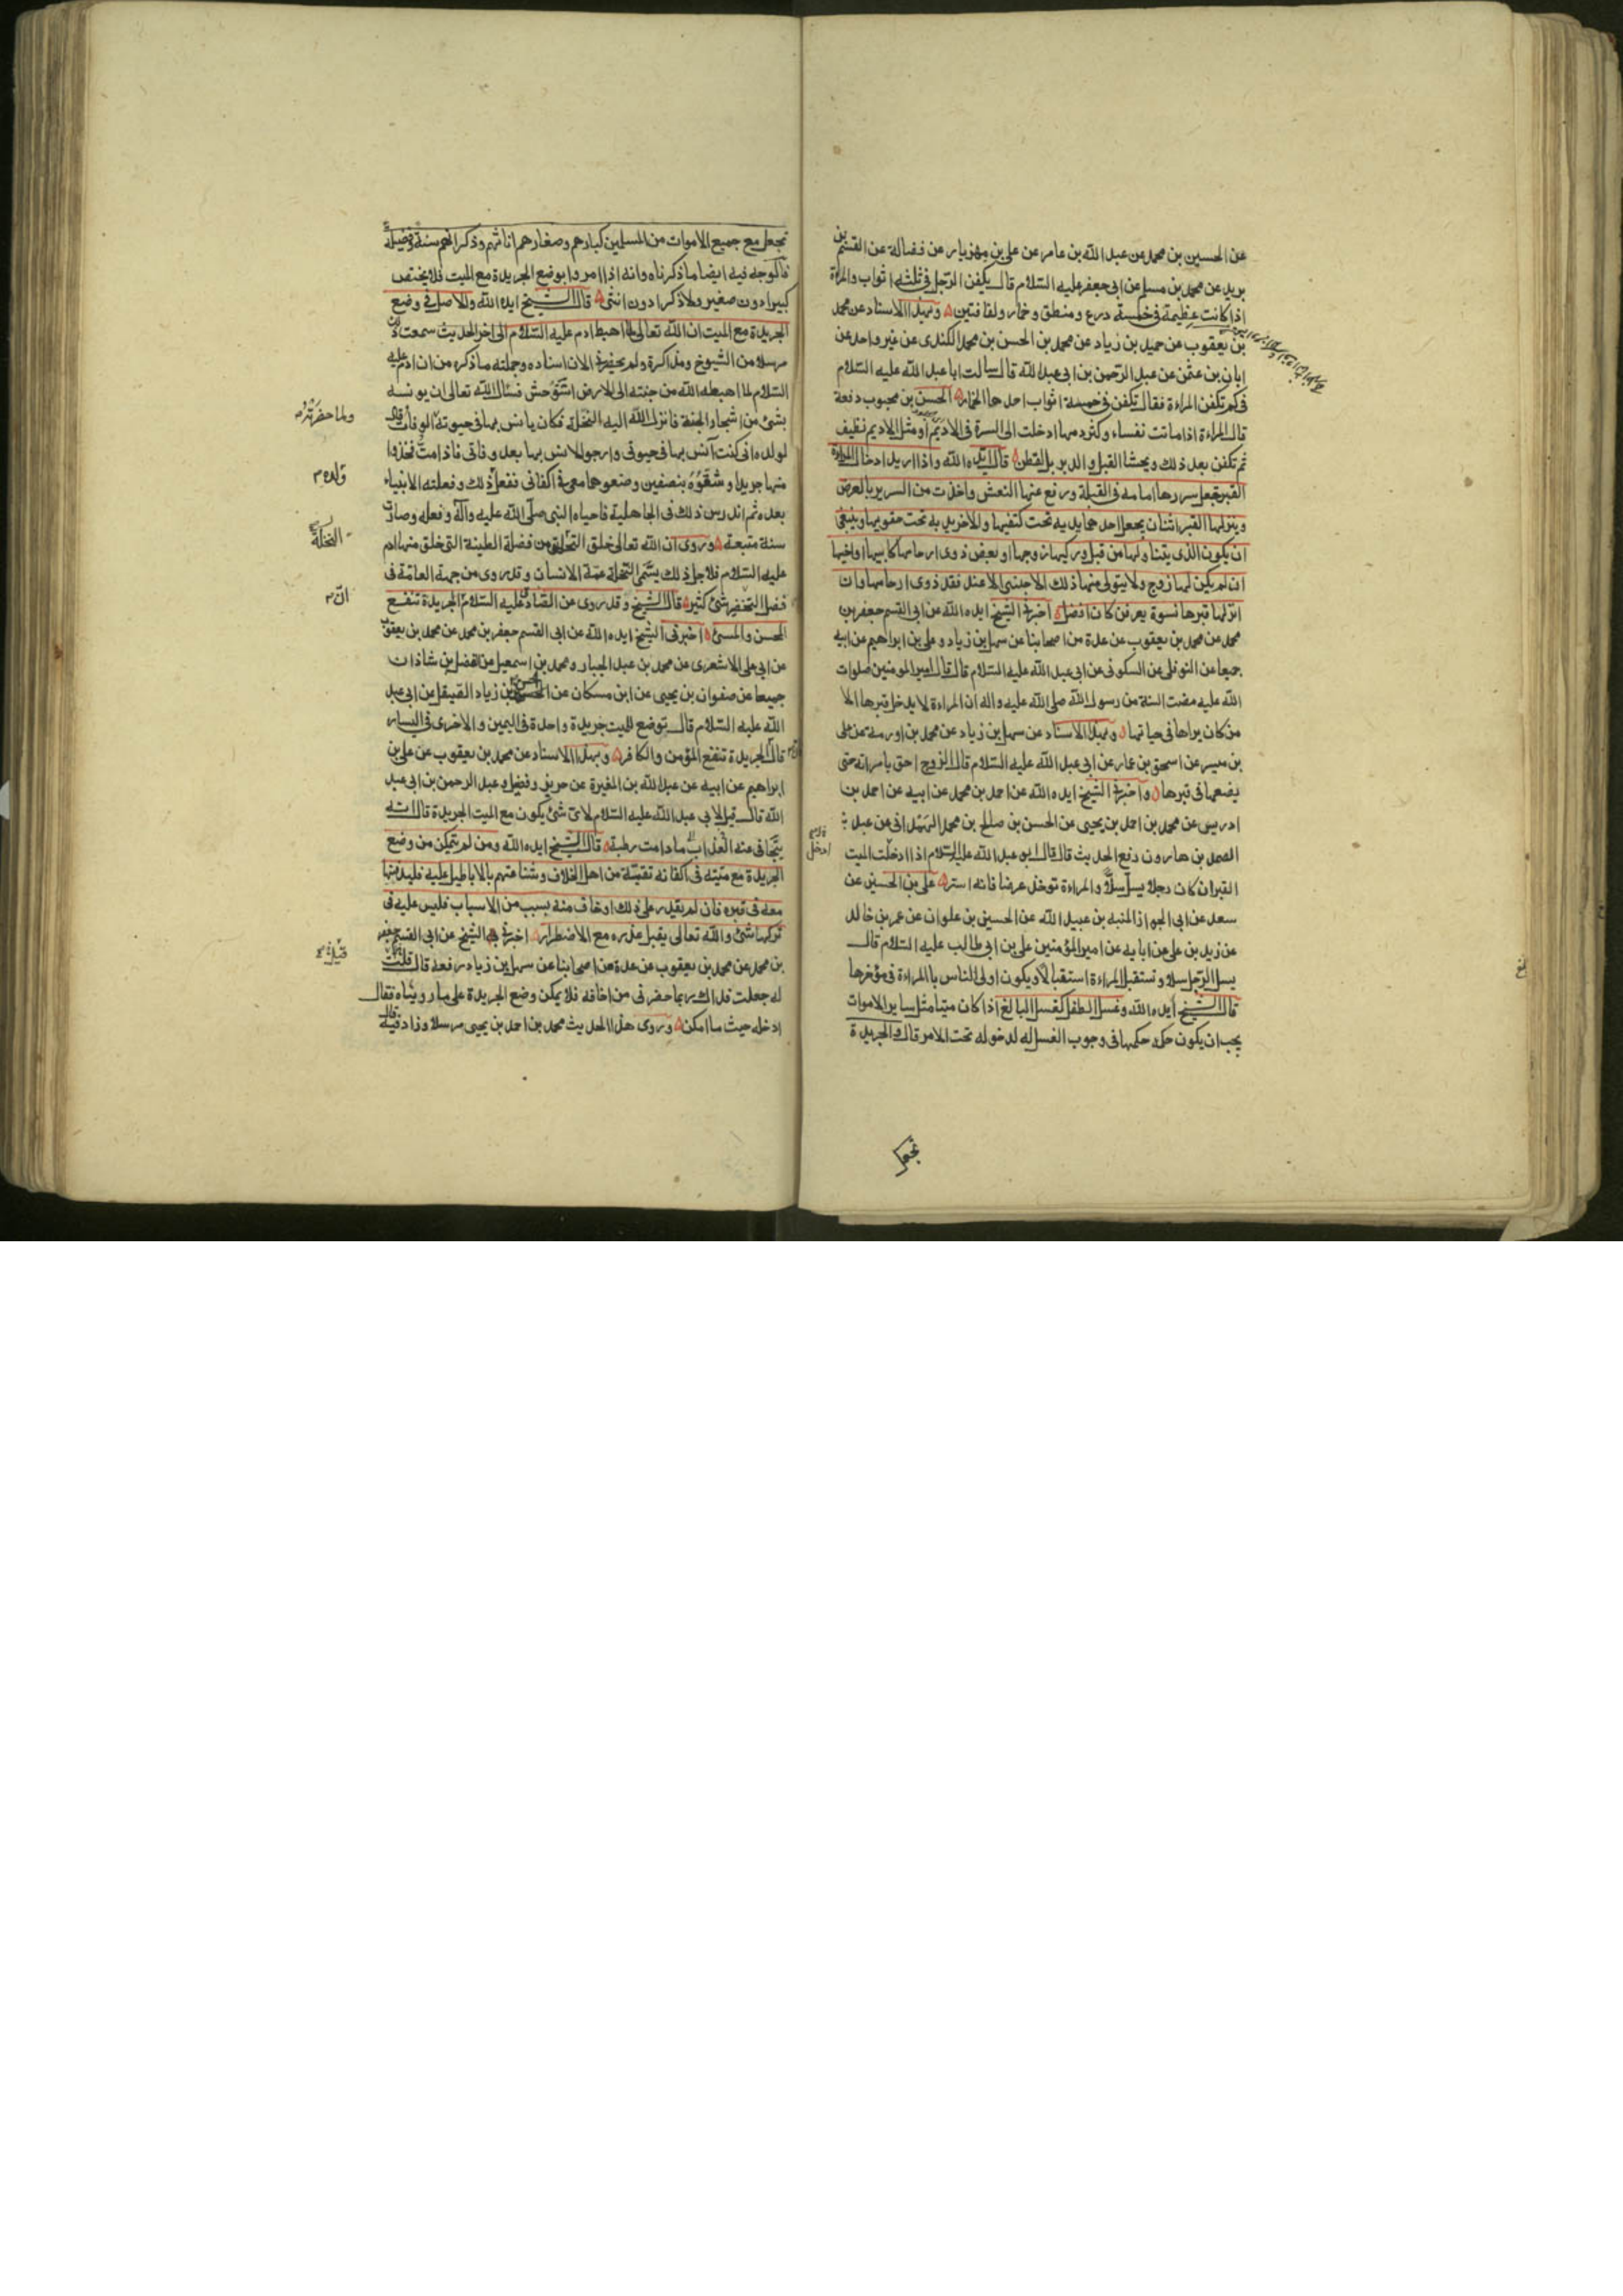 عن الحسين بن محمد عن عبد الله بن عامر عن علي بن مهزيار عن فضالة عن القسم بن
بريد عن محمد بن مسلم عن ابي جعفر عليه السلام قال يكفن الرجل في ثلثة اثواب والمراة
اذا كانت عظيمة في خمسة درع ومنطق وخمار ولفافتين وبهذا الاسناد عن محمد
بن يعقوب عن حميد بن زياد عن محمد بن الحسن بن محمد الكندي عن غير واحد عن
ابان بن عثمن عن عبد الرحمن بن ابي عبد الله قال سالت ابا عبد الله عليه السلام
في كم تكفن المراءة فقال تكفن في خمسة اثواب احدها الخمار الحسن بن محبوب دفعة
قال المراءة اذا ماتت نفساء وكثر دمها ادخلت الى السرة في الاديم او مثل الاديم نظيف
ثم تكفن بعد ذلك ويحشا القبل والدبر بالقطن قال ايده الله واذا اريد ادخال المراءة
القبر جعل سريرها امامه في القبلة ورفع عنها النعش واخذت من السرير بالعرض
وينزلها القبر اثنان يجعل احدهما يديه تحت كتفيها والاخر يديه تحت حقويها وينبغي
ان يكون الذي يتناولها من قبل وركيها زوجها او بعض ذوي ارحامها كابيها او اخيها
ان لم يكن لها زوج ولا يتولى منها ذلك الاجنبي الا عند فقد ذوي ارحامها وان
انزلها قبرها نسوة يعرفن كان افضل اخبرني الشيخ ايده الله عن ابي القسم جعفر بن
محمد عن محمد بن يعقوب عن عدة من اصحابنا عن سهل بن زياد وعلي بن ابراهيم عن ابيه
جميعا عن النوفلي عن السكوني عن ابي عبد الله عليه السلام قال قال امير المومنين صلوات
الله عليه مضت السنة من رسول الله صلى الله عليه واله ان المراءة لا يدخل قبرها الا
من كان يراها في حياتها وبهذا الاسناد عن سهل بن زياد عن محمد بن اورمة عن علي
بن ميسر عن اسحق بن عمار عن ابي عبد الله عليه السلام قال الزوج احق بامراته حتى
يضعها في قبرها واخبرني الشيخ ايده الله عن احمد بن محمد عن ابيه عن احمد بن
ادريس عن محمد بن احمد بن يحيى عن الحسن بن صالح بن محمد الهمداني عن عبد
الصمد بن هارون رفع الحديث قال قال ابو عبد الله عليه السلام اذا ادخلت الميت
القبر ان كان رجلا يسل سلا والمراءة توخذ عرضا فانه استر علي بن الحسين عن
سعد عن ابي الجوزا المنبه بن عبيد الله عن الحسين بن علوان عن عمر بن خالد
عن زيد بن علي عن ابايه عن امير المؤمنين علي بن ابي طالب عليه السلام قال
يسل الرجل سلا وتستقبل المراءة استقبالا ويكون اولى الناس بالمراءة في مؤخرها
قال الشيخ ايده الله وغسل الطفل كغسل البالغ اذا كان ميتا مثل ساير الاموات
يجب ان يكون حكمه حكمها في وجوب الغسل له لدخوله تحت الامر قال والجريدة
ادخل
تجعل
تجعل مع جميع الاموات من المسلمين كبارهم وصغارهم اناثهم وذكرانهم سنة وفضيلة
فالوجه فيه ايضا ما ذكرناه وانه اذا امروا بوضع الجريدة مع الميت فلا يختص
كبيرا دون صغير ولا ذكرا دون انثى قال الشيخ ايده الله والاصل في وضع
الجريدة مع الميت ان الله تعالى لما اهبط ادم عليه السلام الى اخر الحديث سمعت ذلك
مرسلا من الشيوخ ومذاكرة ولم يحضرني الان اسناده وجملته ما ذكره من ان ادم عليه
السلام لما اهبطه الله من جنته الى الارض استوحش فسال الله تعالى ان يونسه
بشئ من اشجار الجنة فانزل الله اليه النخلة فكان يانس بها في حيوته الوفاة قال
لولده اني كنت آنس بها في حيوتي وارجو الانس بها بعد وفاتي فاذا مت فخذوا
منها جريدا وشقوه بنصفين وضعوهما معي في اكفاني ففعل ذلك وفعلته الانبياء
بعده ثم اندرس ذلك في الجاهلية فاحياه النبي صلى الله عليه وآله وفعله وصارت
سنة متبعة وروى ان الله تعالى خلق النخلة من فضلة الطينة التي خلق منها ادم
عليه السلام فلاجل ذلك يسمى النخلة عمة الانسان وقد روى من جهة العامة في
فضل التخضير شئ كثير قال الشيخ وقد روى عن الصادق عليه السلام الجريدة تنفع
المحسن والمسئ اخبرني الشيخ ايده الله عن ابي القسم جعفر بن محمد عن محمد بن يعقوب
عن ابي علي الاشعري عن محمد بن عبد الجبار ومحمد بن اسمعيل عن الفضل بن شاذان
جميعا عن صفوان بن يحيى عن ابن مسكان عن الحسن بن زياد الصيقل عن ابي عبد
الله عليه السلام قال توضع للميت جريدة واحدة في اليمين والاخرى في اليسار
قال الجريدة تنفع المؤمن والكافر وبهذا الاسناد عن محمد بن يعقوب عن علي بن
ابراهيم عن ابيه عن عبد الله بن المغيرة عن حريز وفضيل وعبد الرحمن بن ابي عبد
الله قال قيل لابي عبد الله عليه السلام لاي شئ يكون مع الميت الجريدة قال انه
يتجافى عنه العذاب ما دامت رطبة قال الشيخ ايده الله ومن لم يتمكن من وضع
الجريدة مع ميته في اكفانه تقية من اهل الخلاف وشناعتهم بالاباطيل عليه فليدفنها
معه في قبره فان لم يقدر على ذلك او خاف منه بسبب من الاسباب فليس عليه في
تركها شئ والله تعالى يقبل عذره مع الاضطرار اخبرني الشيخ عن ابي القسم جعفر
بن محمد عن محمد بن يعقوب عن عدة من اصحابنا عن سهل بن زياد رفعه قال قلت
له جعلت فداك ربما حضرني من اخافه فلا يمكن وضع الجريدة على ما رويناه فقال
ادخله حيث ما امكن وروى هذا الحديث محمد بن احمد بن يحيى مرسلا وزاد فيه قال
ولما حضرته
ولده
النخلة
ان